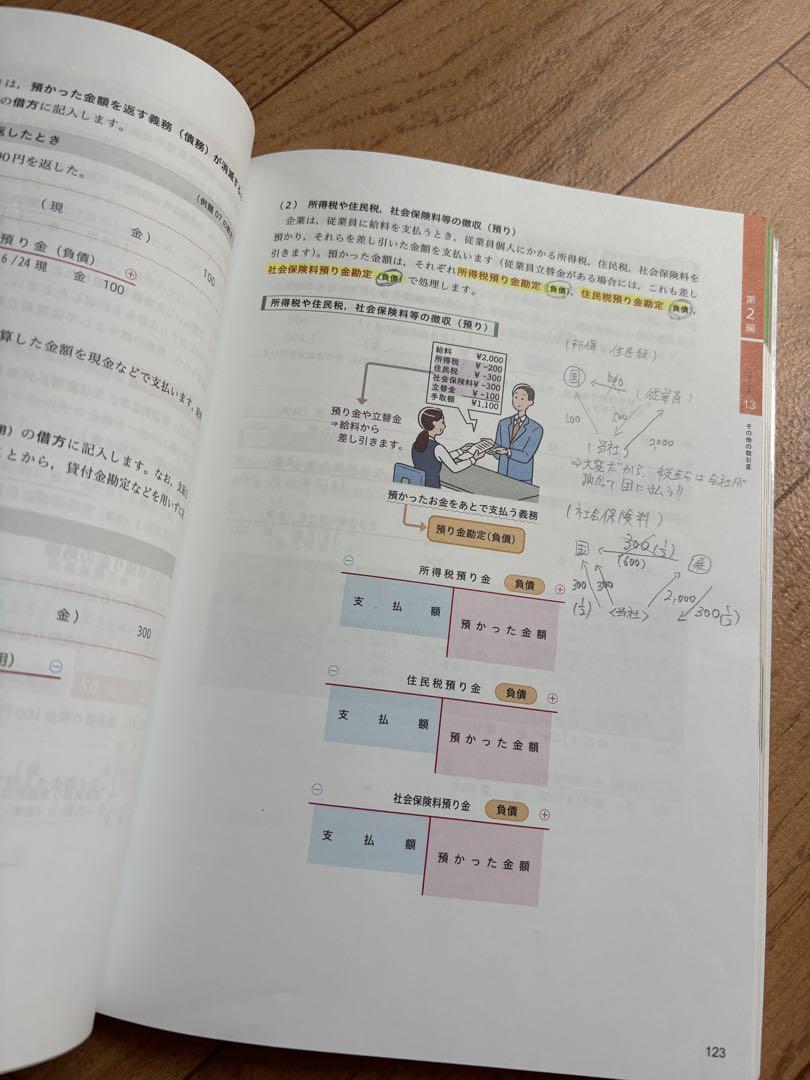 は，預かった金額を返す義務（債務）が消滅する。
の借方に記入します。
返したとき
（例題07の
00円を返した。
（現　　金）　100
預り金（負債）　⊕
6/24 現　金　100
算した金額を現金などで支払います。
用）の借方に記入します。なお，
ことから，貸付金勘定などを用いずに
金）　300
用）　⊖
（2）　所得税や住民税，社会保険料等の徴収（預り）
企業は，従業員に給料を支払うとき，従業員個人にかかる所得税，住民税，社会保険料を
預かり，それらを差し引いた金額を支払います（従業員立替金がある場合には，これも差し
引きます）。預かった金額は，それぞれ所得税預り金勘定（負債），住民税預り金勘定（負債），
社会保険料預り金勘定（負債）で処理します。
所得税や住民税，社会保険料等の徴収（預り）
給料　¥2,000
所得税　¥ −200
住民税　¥ −300
社会保険料¥ −300
立替金　¥ −100
手取額　¥1,100
預り金や立替金
⇒給料から
差し引きます。
預かったお金をあとで支払う義務
預り金勘定（負債）
⊖　所得税預り金　負債　⊕
支　払　額　預かった金額
⊖　住民税預り金　負債　⊕
支　払　額　預かった金額
⊖　社会保険料預り金　負債　⊕
支　払　額　預かった金額
（所得、住民税）
国　500　（従業員）
500　500
（当社）　2,000
⇒大変だから、税金らは会社が
預かって国に払う!!
（社会保険料）
国　300(1/2)　従
(600)
300　300　2,000
(1/2)　〈当社〉　300(1/2)
第2編
13
その他の取引Ⅲ
123